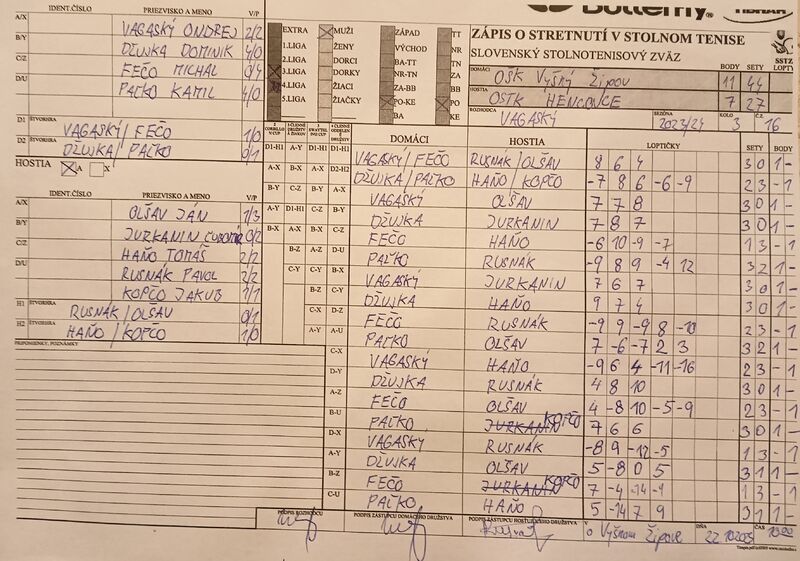 IDENT.ČÍSLO PRIEZVISKO A MENO V/P
A/X VAGASKÝ ONDREJ 2/2
B/Y DŽUJKA DOMINIK 4/0
C/Z FEČO MICHAL 0/4
D/U PAĽKO KAMIL 4/0
D1 ŠTVORHRA VAGASKÝ/FEČO 1/0
D2 ŠTVORHRA DŽUJKA/PAĽKO 0/1
HOSTIA A X
IDENT.ČÍSLO PRIEZVISKO A MENO V/P
A/X OĽŠAV JÁN 1/3
B/Y JURKANIN ĽUBOMÍR 0/2
C/Z HAŇO TOMÁŠ 2/2
D/U RUSNÁK PAVOL 2/2
KOPČO JAKUB 1/1
H1 ŠTVORHRA RUSNÁK/OĽŠAV 0/1
H2 ŠTVORHRA HAŇO/KOPČO 1/0
PRIPOMIENKY, POZNÁMKY
EXTRA MUŽI ZÁPAD TT
1.LIGA ŽENY VÝCHOD NR
2.LIGA DORCI BA-TT TN
3.LIGA DORKY NR-TN ZA
4.LIGA ŽIACI ZA-BB BB
5.LIGA ŽIAČKY PO-KE PO
BA KE
Butterfly TIBHAR
ZÁPIS O STRETNUTÍ V STOLNOM TENISE
SLOVENSKÝ STOLNOTENISOVÝ ZVÄZ
SSTZ
DOMÁCI OŠK VYŠNÝ ŽIPOV BODY 11 SETY 44 LOPTY
HOSTIA OSTK HENCOVCE 7 27
ROZHODCA VAGASKÝ SEZÓNA 2023/24 KOLO 3 Č.Z. 16
DOMÁCI HOSTIA LOPTIČKY SETY BODY
D1-H1 A-Y D1-H1 D1-H1 VAGASKÝ/FEČO RUSNÁK/OĽŠAV 8 6 4 3 0 1 -
A-X B-X A-X D2-H2 DŽUJKA/PAĽKO HAŇO/KOPČO -7 8 6 -6 -9 2 3 - 1
B-Y C-Z B-Y A-X VAGASKÝ OĽŠAV 7 7 8 3 0 1 -
A-Y D1-H1 C-Z B-Y DŽUJKA JURKANIN 7 8 7 3 0 1 -
B-X A-X B-X C-Z FEČO HAŇO -6 10 -9 -7 1 3 - 1
B-Z A-Z D-U PAĽKO RUSNÁK -9 8 9 -4 12 3 2 1 -
C-Y C-Y B-X VAGASKÝ JURKANIN 7 6 7 3 0 1 -
B-Z C-Y DŽUJKA HAŇO 9 7 4 3 0 1 -
C-X D-Z FEČO RUSNÁK -9 9 -9 8 -10 2 3 - 1
A-Y A-U PAĽKO OĽŠAV 7 -6 -7 2 3 3 2 1 -
C-X VAGASKÝ HAŇO -9 6 4 -11 -16 2 3 - 1
D-Y DŽUJKA RUSNÁK 4 8 10 3 0 1 -
A-Z FEČO OĽŠAV 4 -8 10 -5 -9 2 3 - 1
B-U PAĽKO JURKANIN KOPČO 7 6 6 3 0 1 -
D-X VAGASKÝ RUSNÁK -8 9 -12 -5 1 3 - 1
A-Y DŽUJKA OĽŠAV 5 -8 0 5 3 1 1 -
B-Z FEČO JURKANIN KOPČO 7 -4 -14 -9 1 3 - 1
C-U PAĽKO HAŇO 5 -14 7 9 3 1 1 -
PODPIS ROZHODCU PODPIS ZÁSTUPCU DOMÁCEHO DRUŽSTVA PODPIS ZÁSTUPCU HOSŤUJÚCEHO DRUŽSTVA V o Vyšnom Žipove DŇA 22.10.2023 ČAS 10:00